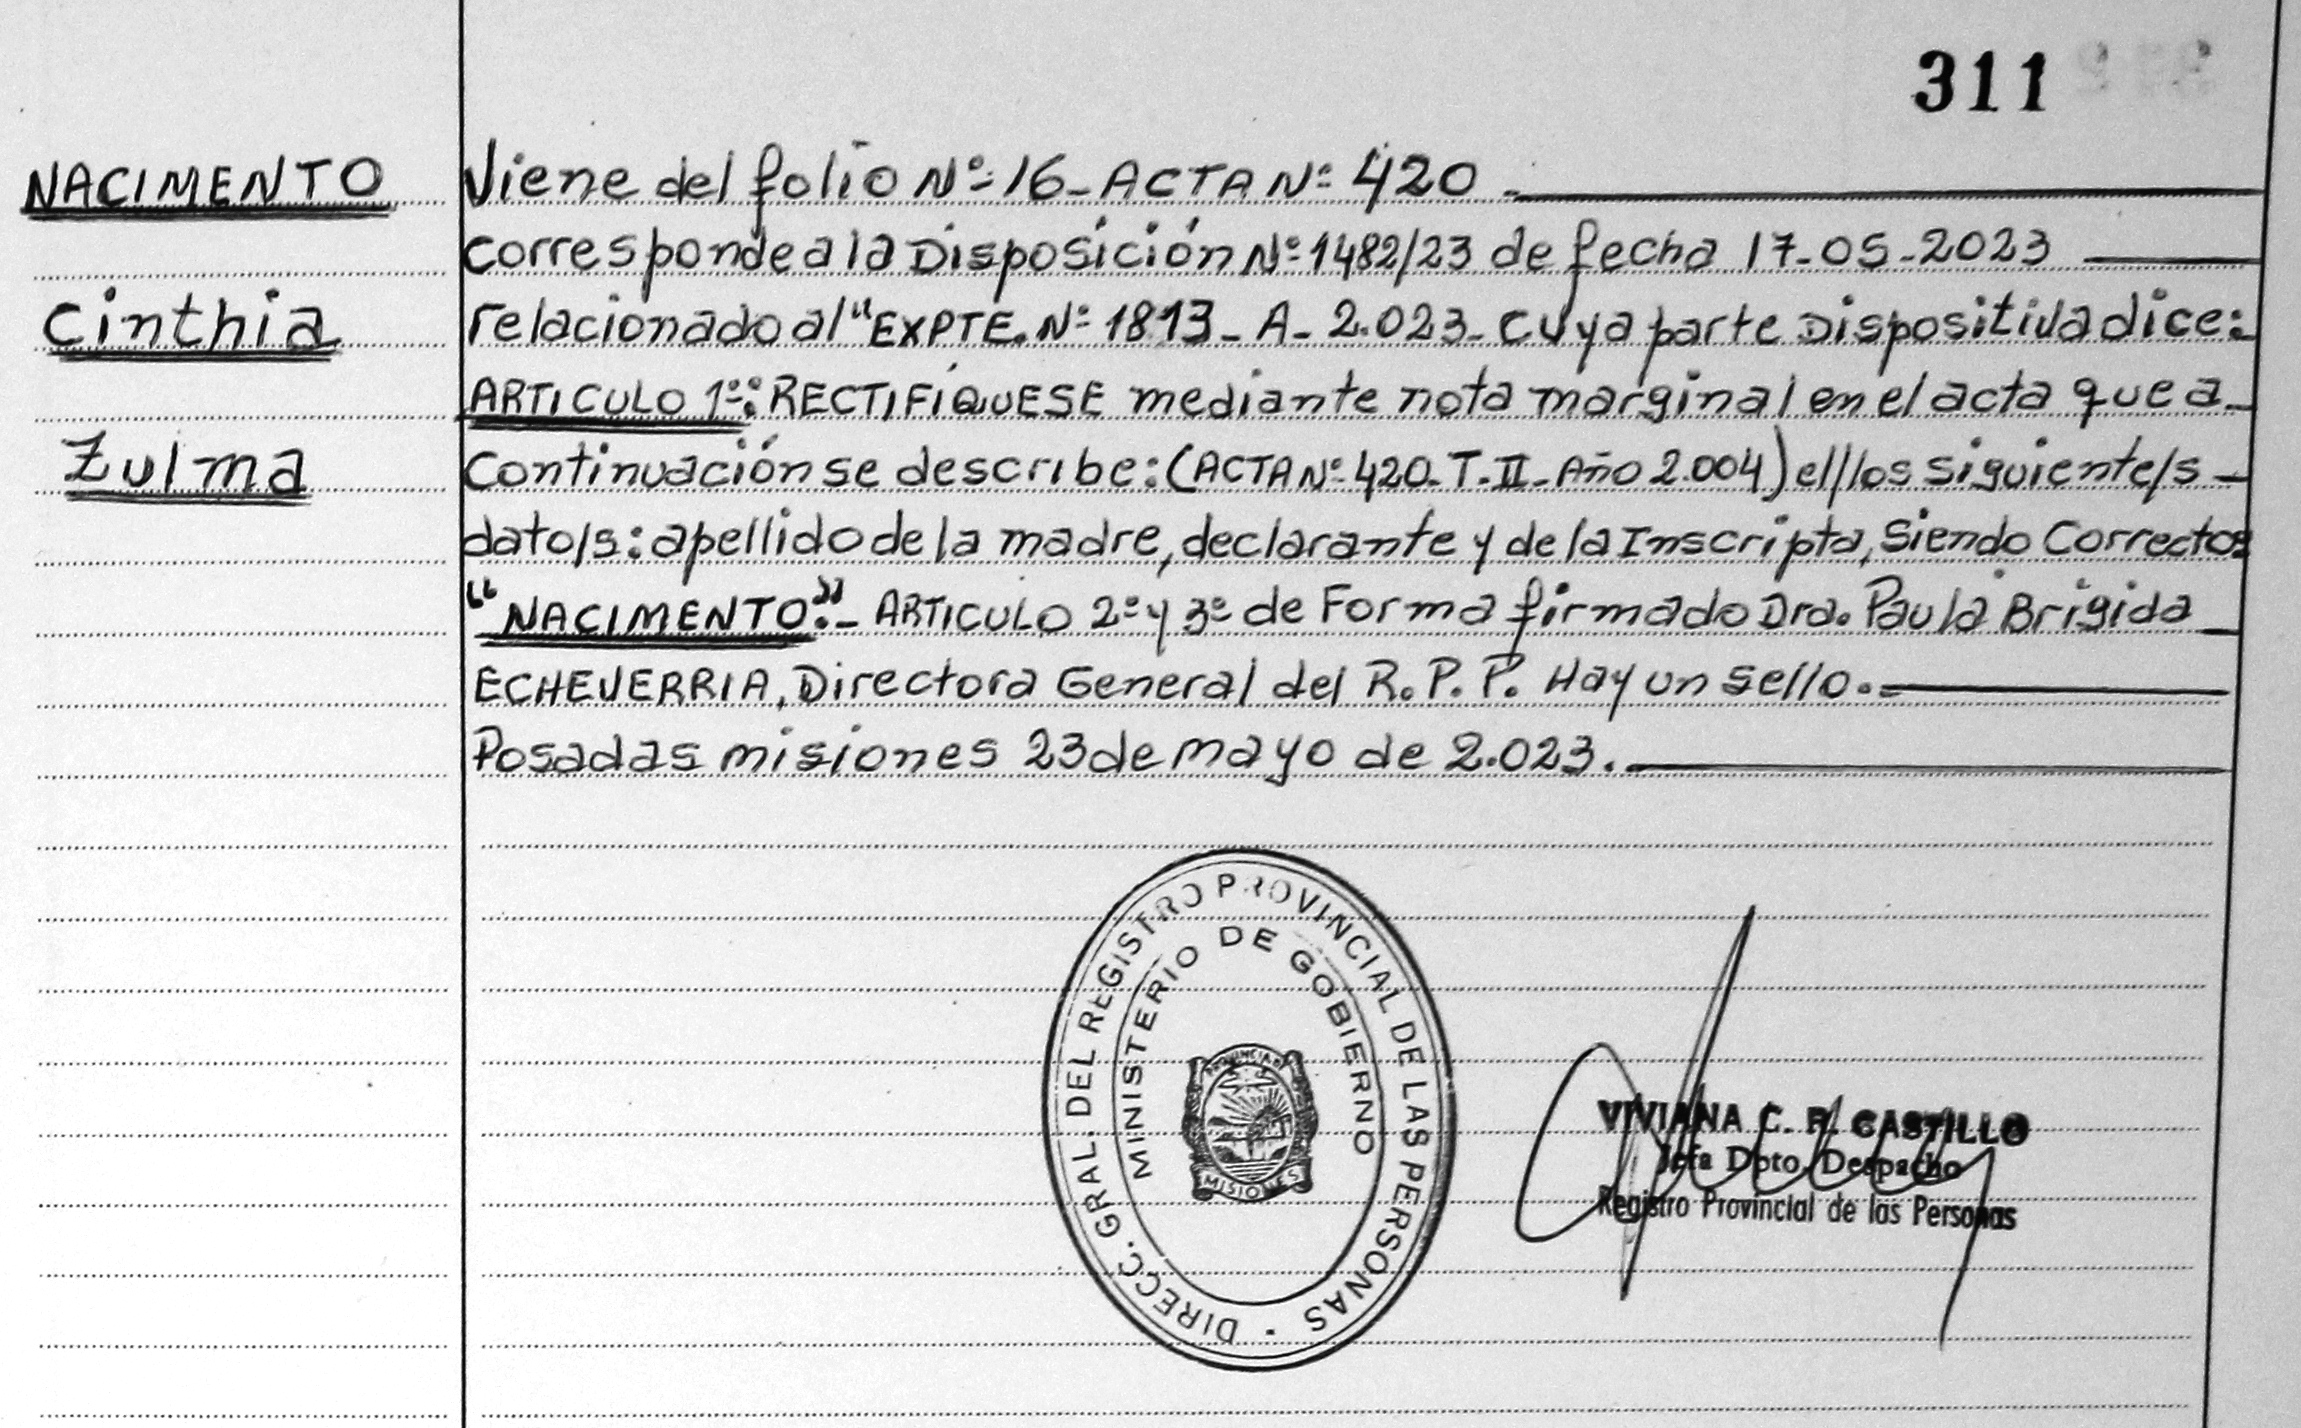 311
NACIMENTO
Cinthia
Zulma
Viene del folio Nº 16_ ACTA Nº 420.
corresponde a la Disposición Nº 1482/23 de fecha 17-05-2023
relacionado al "EXPTE. Nº 1813_ A_ 2.023_ cuya parte Dispositiva dice:
ARTICULO 1º: RECTIFÍQUESE mediante nota marginal en el acta que a_
Continuación se describe: (ACTA Nº 420_T.II_Año 2.004) el/los siguiente/s _
dato/s: apellido de la madre, declarante y de la Inscripta, Siendo Correcto:
"NACIMENTO"._ ARTICULO 2º y 3º de Forma firmado Dra. Paula Brígida _
ECHEVERRIA, Directora General del R.P.P. Hay un sello.=
Posadas misiones 23 de mayo de 2.023.
DIRECC. GRAL. DEL REGISTRO PROVINCIAL DE LAS PERSONAS
MINISTERIO DE GOBIERNO
MISIONES
VIVIANA C. R. CASTILLO
Jefa Dpto. Despacho
Registro Provincial de las Personas